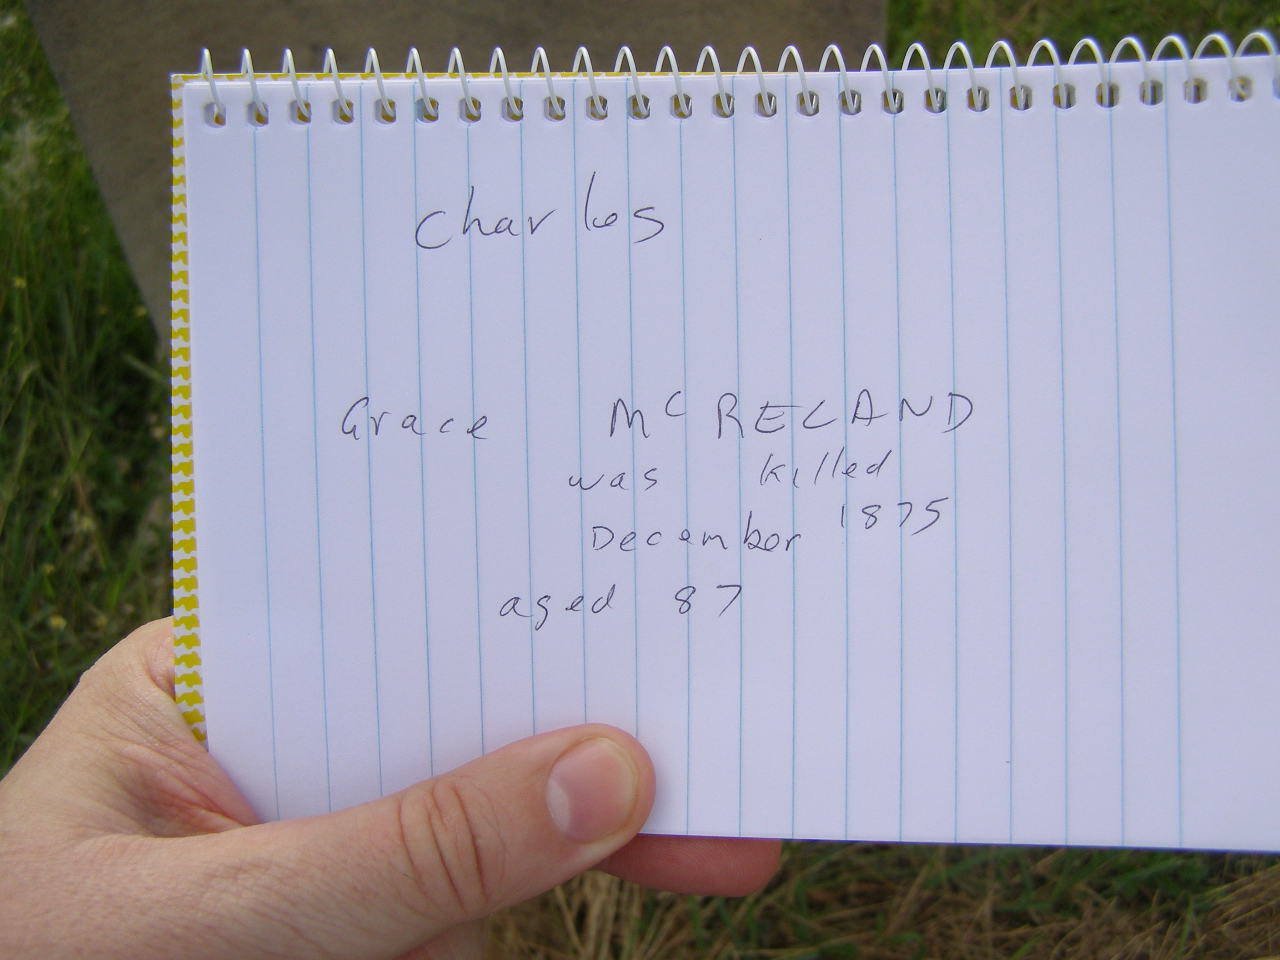 Charles
Grace McRELAND
was killed
December 1875
aged 87